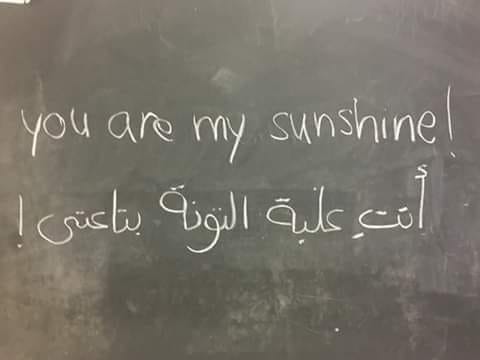 you are my sunshine!
أنتِ علبة التونة بتاعتى!